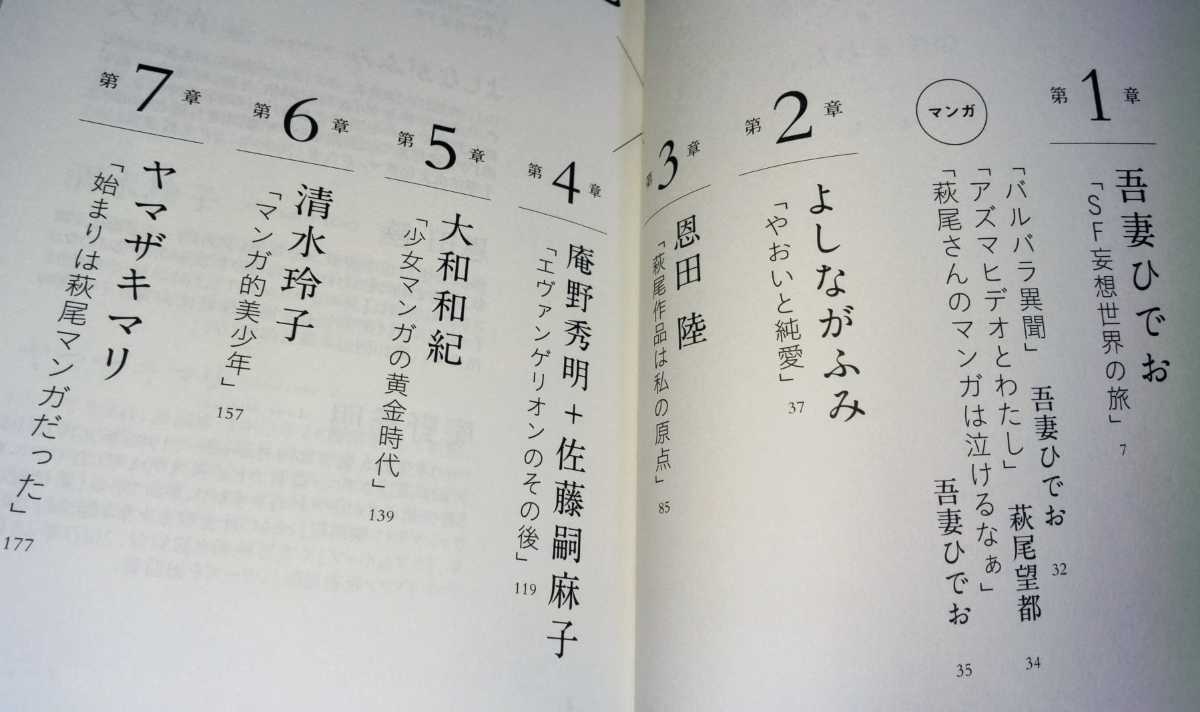 第1章
吾妻ひでお
「SF妄想世界の旅」 7
マンガ
「バルバラ異聞」 吾妻ひでお 32
「アズマヒデオとわたし」 萩尾望都 34
「萩尾さんのマンガは泣けるなぁ」 吾妻ひでお 35
第2章
よしながふみ
「やおいと純愛」 37
第3章
恩田 陸
「萩尾作品は私の原点」 85
第4章
庵野秀明+佐藤嗣麻子
「エヴァンゲリオンのその後」 119
第5章
大和和紀
「少女マンガの黄金時代」 139
第6章
清水玲子
「マンガ的美少年」 157
第7章
ヤマザキマリ
「始まりは萩尾マンガだった」 177